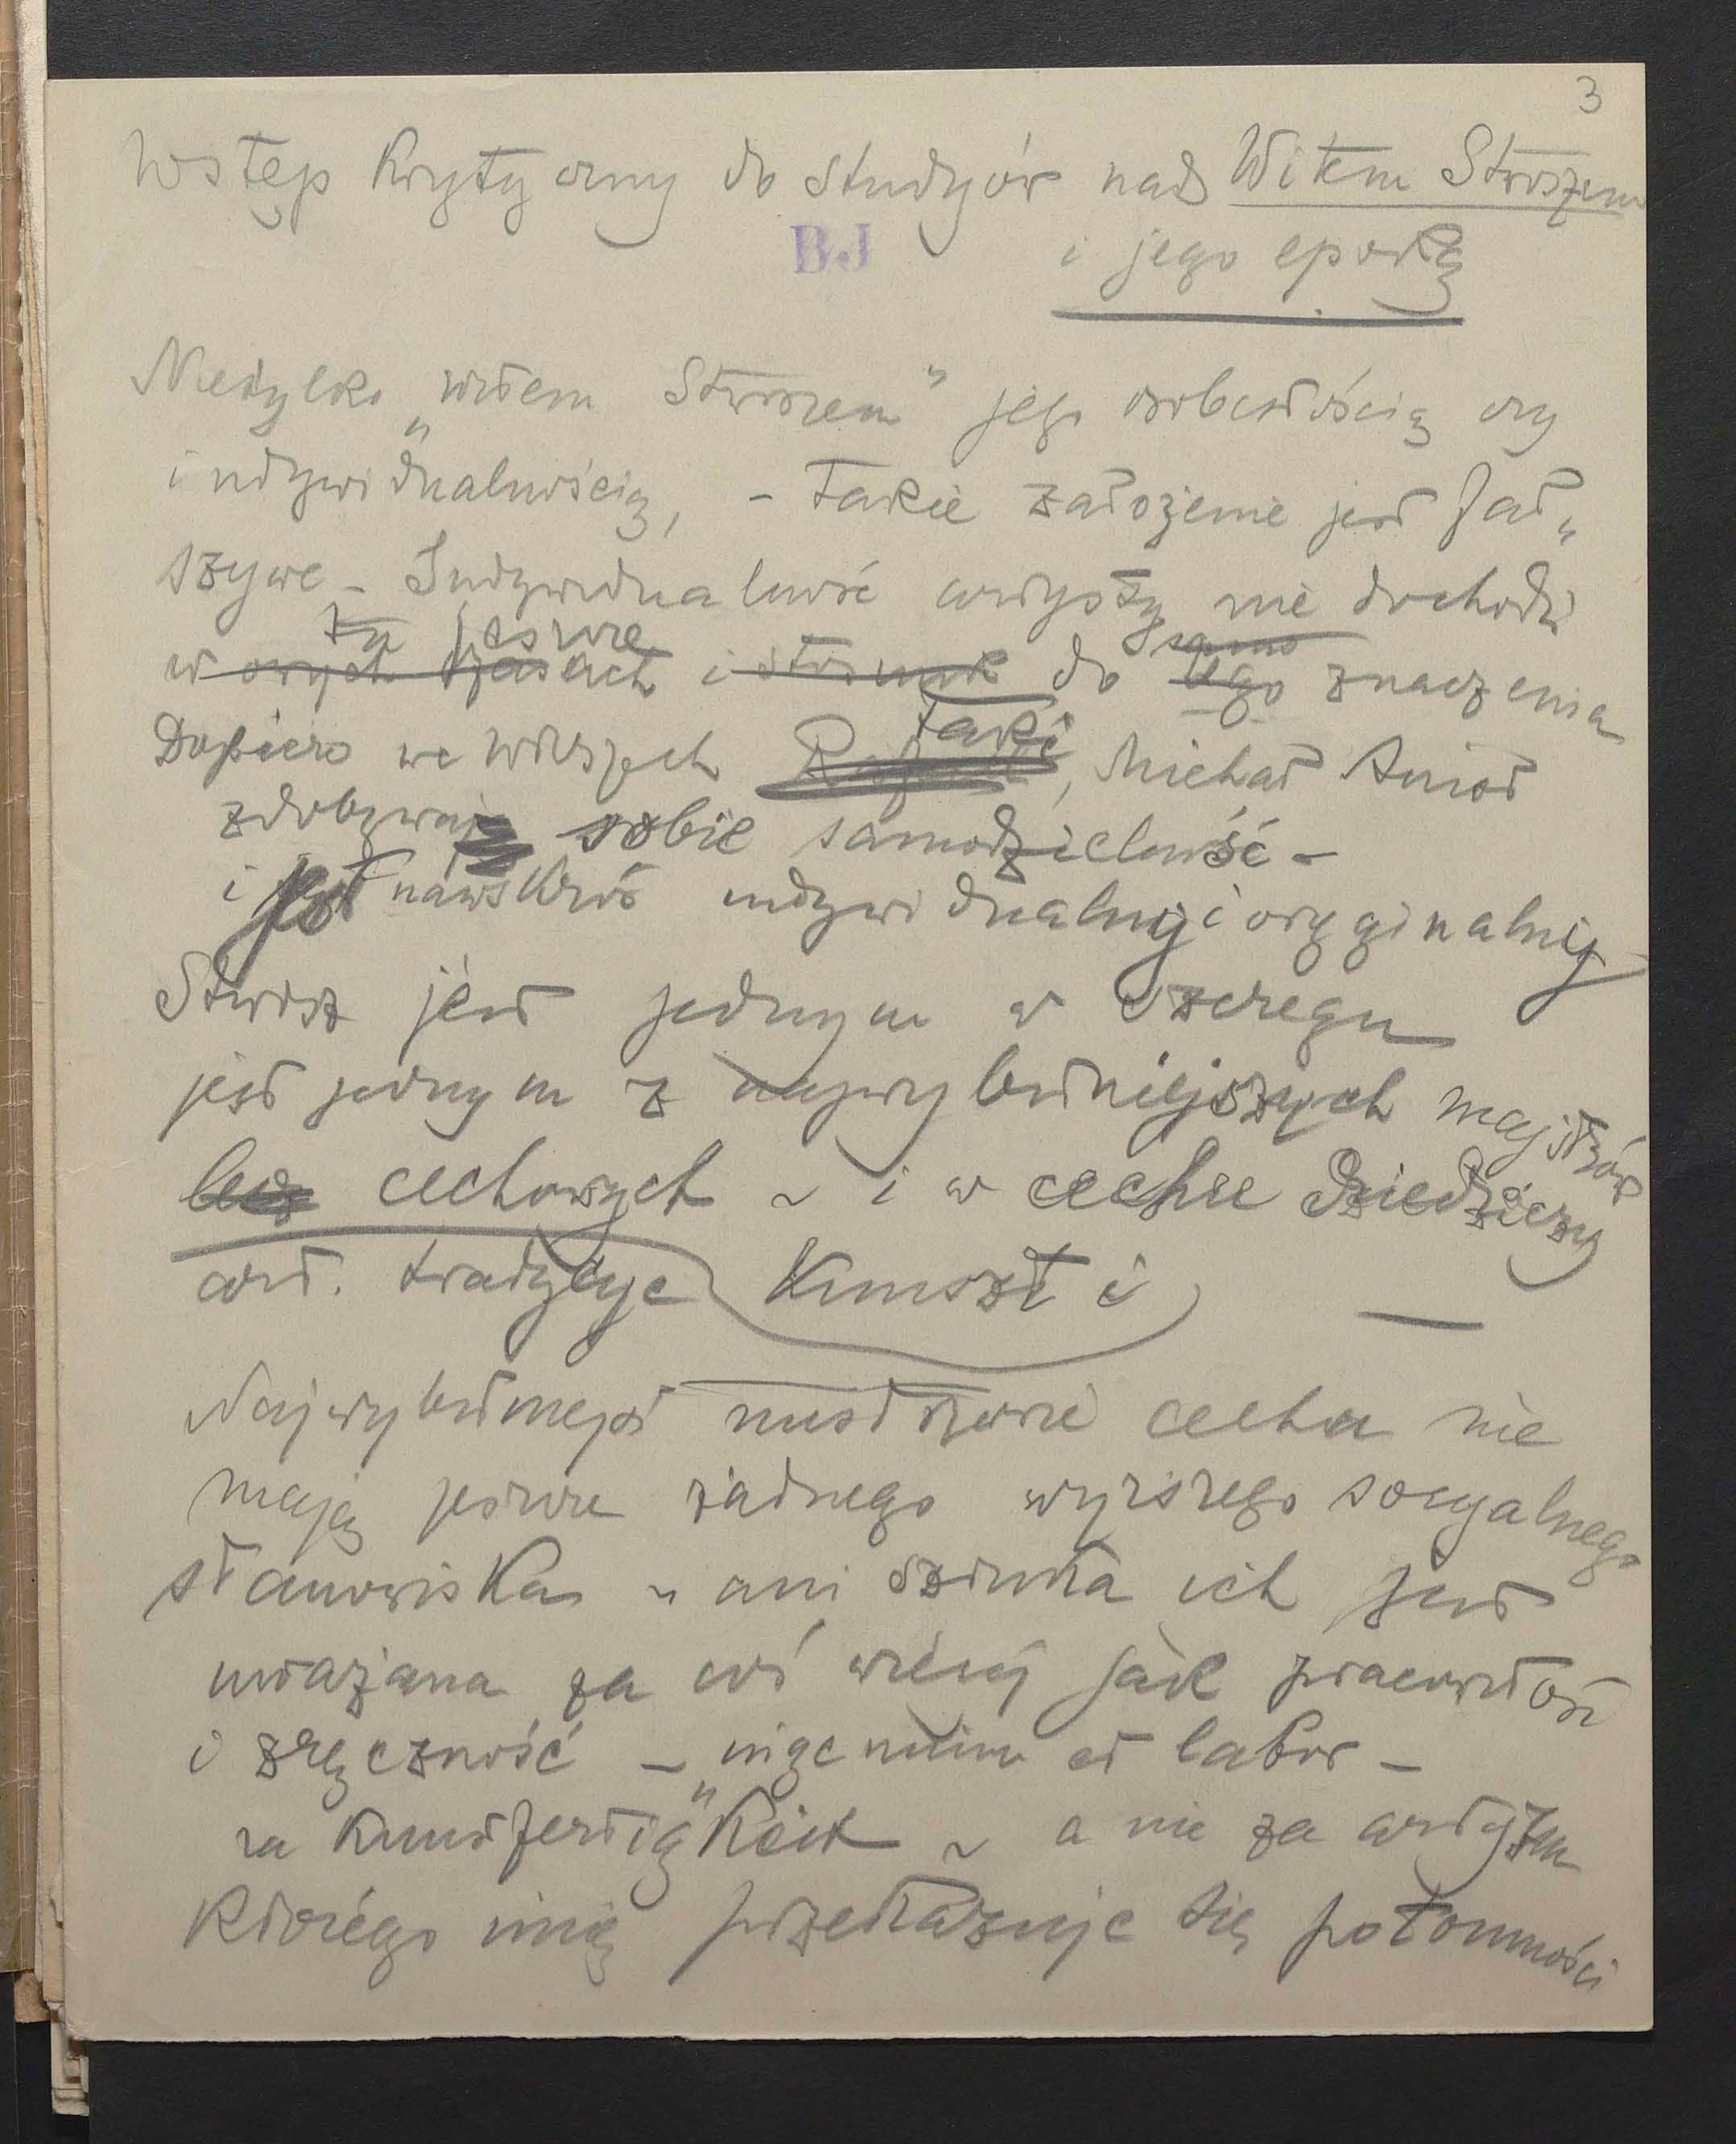 3
Wstęp Krytyczny do studyów nad Witem Stwoszem
BJ
i jego epoką
Nietylko „Witem Stwoszem" jego osobistością czy
indywidualnością, - Takie założenie jest fał„
„szywe - Indywidualność artysty nie dochodzi
tu jeszcze
w owych czasach i stosunk do tego znaczenia
samo
Dopiero we Włoszech taki, Michał Anioł
zdobywa sobie samodzielność -
i jest nawskroś indywidualny i oryginalny -
Stwosz jest jednym w szeregu
jest jednym z najwybitniejszych majstrów
lecz cechowych ~ i w cechu dziedziczy
art. tradycye Kunszt i
Najwybitniejsi mistrzowie cechu nie
mają jeszcze żadnego wyższego socyalnego
stanowiska ~ ani sztuka ich jest
uważana za coś więcej jak pracowitość
i zręczność - ingenium et labor -
za Kunstfertig„Keit ~ a nie za artyzm
Którego imię przekazuje się potomności